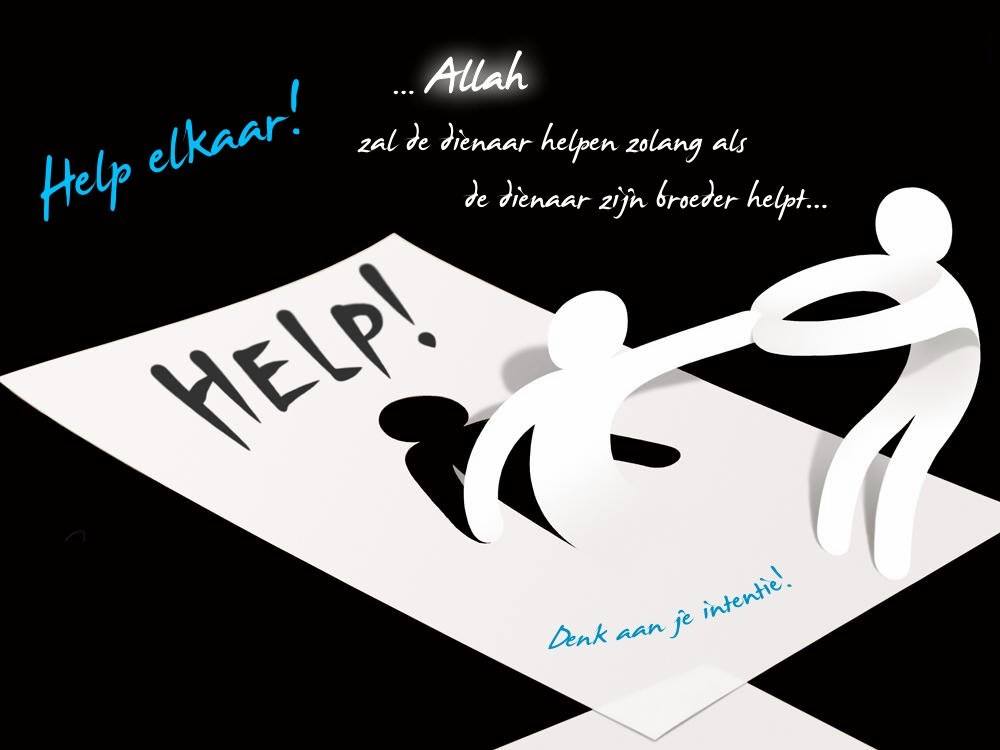 Help elkaar!
... Allah
zal de dienaar helpen zolang als
de dienaar zijn broeder helpt...
HELP!
Denk aan je intentie!